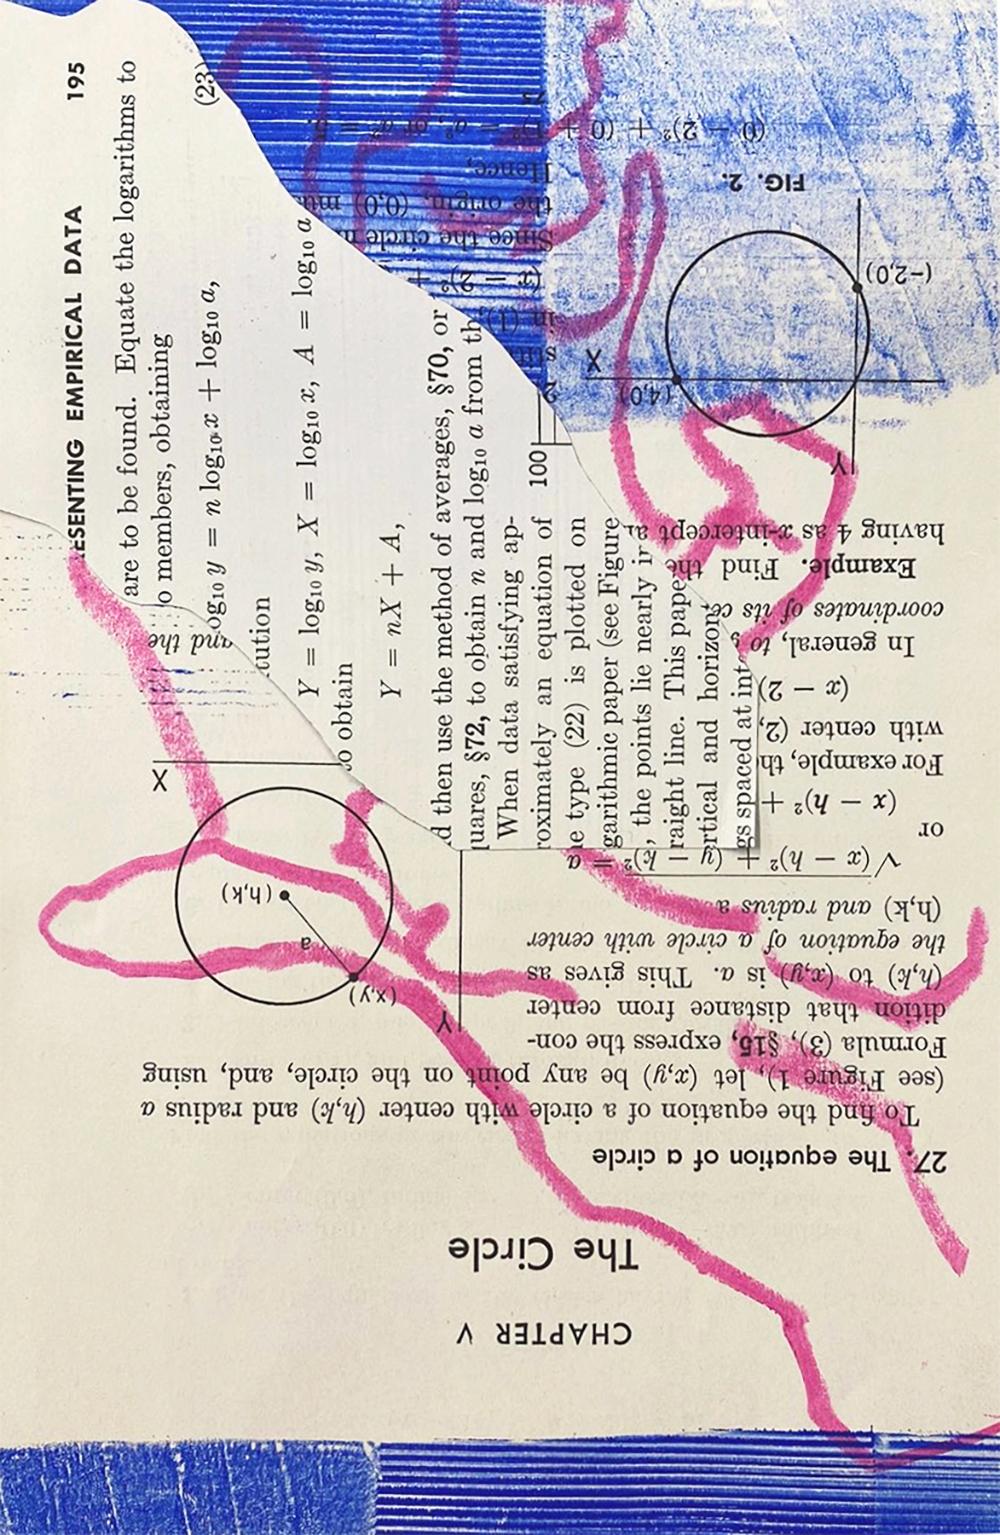 CHAPTER V
The Circle
27. The equation of a circle
To find the equation of a circle with center (h,k) and radius a
(see Figure 1), let (x,y) be any point on the circle, and, using
Formula (3), §15, express the con-
dition that distance from center
(h,k) to (x,y) is a. This gives as
the equation of a circle with center
(h,k) and radius a
√(x − h)² + (y − k)² = a
or
(x − h)² +
For example, th
with center (2,
(x − 2)
In general, to
coordinates of its ce
Example. Find the
having 4 as x-intercept
Y
(x,y)
a
(h,k)
X
and the
Y
(4,0)
X
(−2,0)
FIG. 2.
in (1),
(x − 2)² +
Since the circle
the origin, (0,0)
Hence,
(0 − 2)² + (0 + 1)² = a², or a² =
ESENTING EMPIRICAL DATA 195
are to be found. Equate the logarithms to
o members, obtaining
log₁₀ y = n log₁₀ x + log₁₀ a, (23)
tution
Y = log₁₀ y, X = log₁₀ x, A = log₁₀ a
to obtain
Y = nX + A,
d then use the method of averages, §70, or
uares, §72, to obtain n and log₁₀ a from th
When data satisfying ap-
roximately an equation of
e type (22) is plotted on
garithmic paper (see Figure
, the points lie nearly in
raight line. This pape
rtical and horizon
gs spaced at int
100